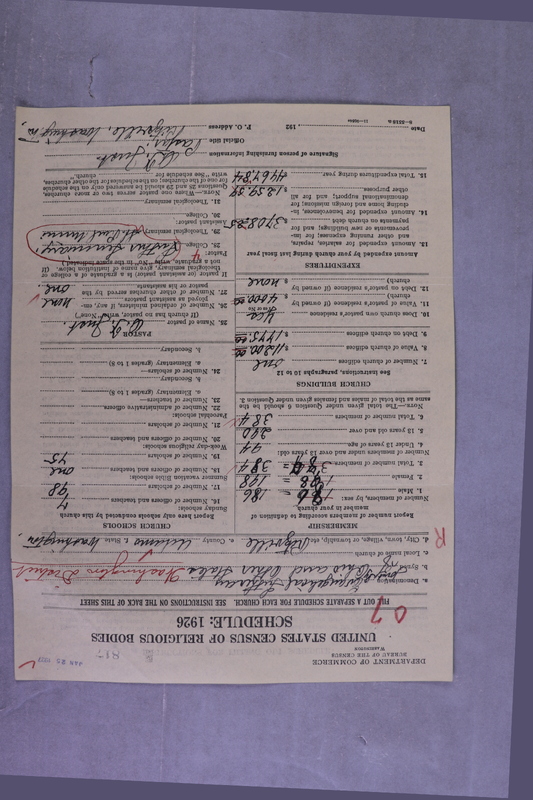 JAN 25 1927
817
DEPARTMENT OF COMMERCE
BUREAU OF THE CENSUS
WASHINGTON
UNITED STATES CENSUS OF RELIGIOUS BODIES
SCHEDULE: 1926
FILL OUT A SEPARATE SCHEDULE FOR EACH CHURCH. SEE INSTRUCTIONS ON THE BACK OF THIS SHEET
a. Denomination Evangelical Lutheran
b. Synod Ohio and Other States Washington District
c. Local name of church
d. City, town, village, or township, etc. Ritzville e. County Adams State Washington
MEMBERSHIP
Report number of members according to definition of member in your church
Number of members, by sex:
1. Male 186
2. Female 198
3. Total number of members 384
Number of members under and over 13 years old:
4. Under 13 years of age 94
5. 13 years old and over 290
6. Total number of members 384
NOTE.—The total given under Question 6 should be the same as the total of males and females given under Question 3.
CHURCH BUILDINGS
See Instructions, paragraphs 10 to 12
7. Number of church edifices one
8. Value of church edifices $ 11200.00
9. Debt on church edifices $ 1475.00
10. Does church own pastor's residence? Yes
(Yes or No)
11. Value of pastor's residence (if owned by church) $ 4000.00
12. Debt on pastor's residence (if owned by church) $ none
EXPENDITURES
Amount expended by your church during last fiscal year:
13. Amount expended for salaries, repairs, and other running expenses; for payments on church debt $ 3108.25
14. Amount expended for benevolences, including home and foreign missions; for denominational support; and for all other purposes $ 1359.59
15. Total expenditures during year $ 4467.84
CHURCH SCHOOLS
Report here only schools conducted by this church
Sunday schools:
16. Number of officers and teachers
17. Number of scholars 98
Summer vacation Bible schools:
18. Number of officers and teachers one
19. Number of scholars 45
Week-day religious schools:
20. Number of officers and teachers
21. Number of scholars
Parochial schools:
22. Number of administrative officers
23. Number of teachers:
a. Elementary (grades 1 to 8)
b. Secondary
24. Number of scholars:
a. Elementary (grades 1 to 8)
b. Secondary
PASTOR
25. Name of pastor
(If church has no pastor, write "None")
26. Number of ordained ministers, if any, employed as assistant pastors none
27. Number of other churches served by the pastor or his assistants one
If pastor or assistant is a graduate of a college or theological seminary, give name of institution below. (If not a graduate, write "No" in the space below)
Pastor:
28. College
29. Theological seminary Luther Seminary, St. Paul Minn.
Assistant pastor:
30. College
31. Theological seminary
Signature of person furnishing information
Official title Pastor
Date , 192 P. O. Address Ritzville, Washington